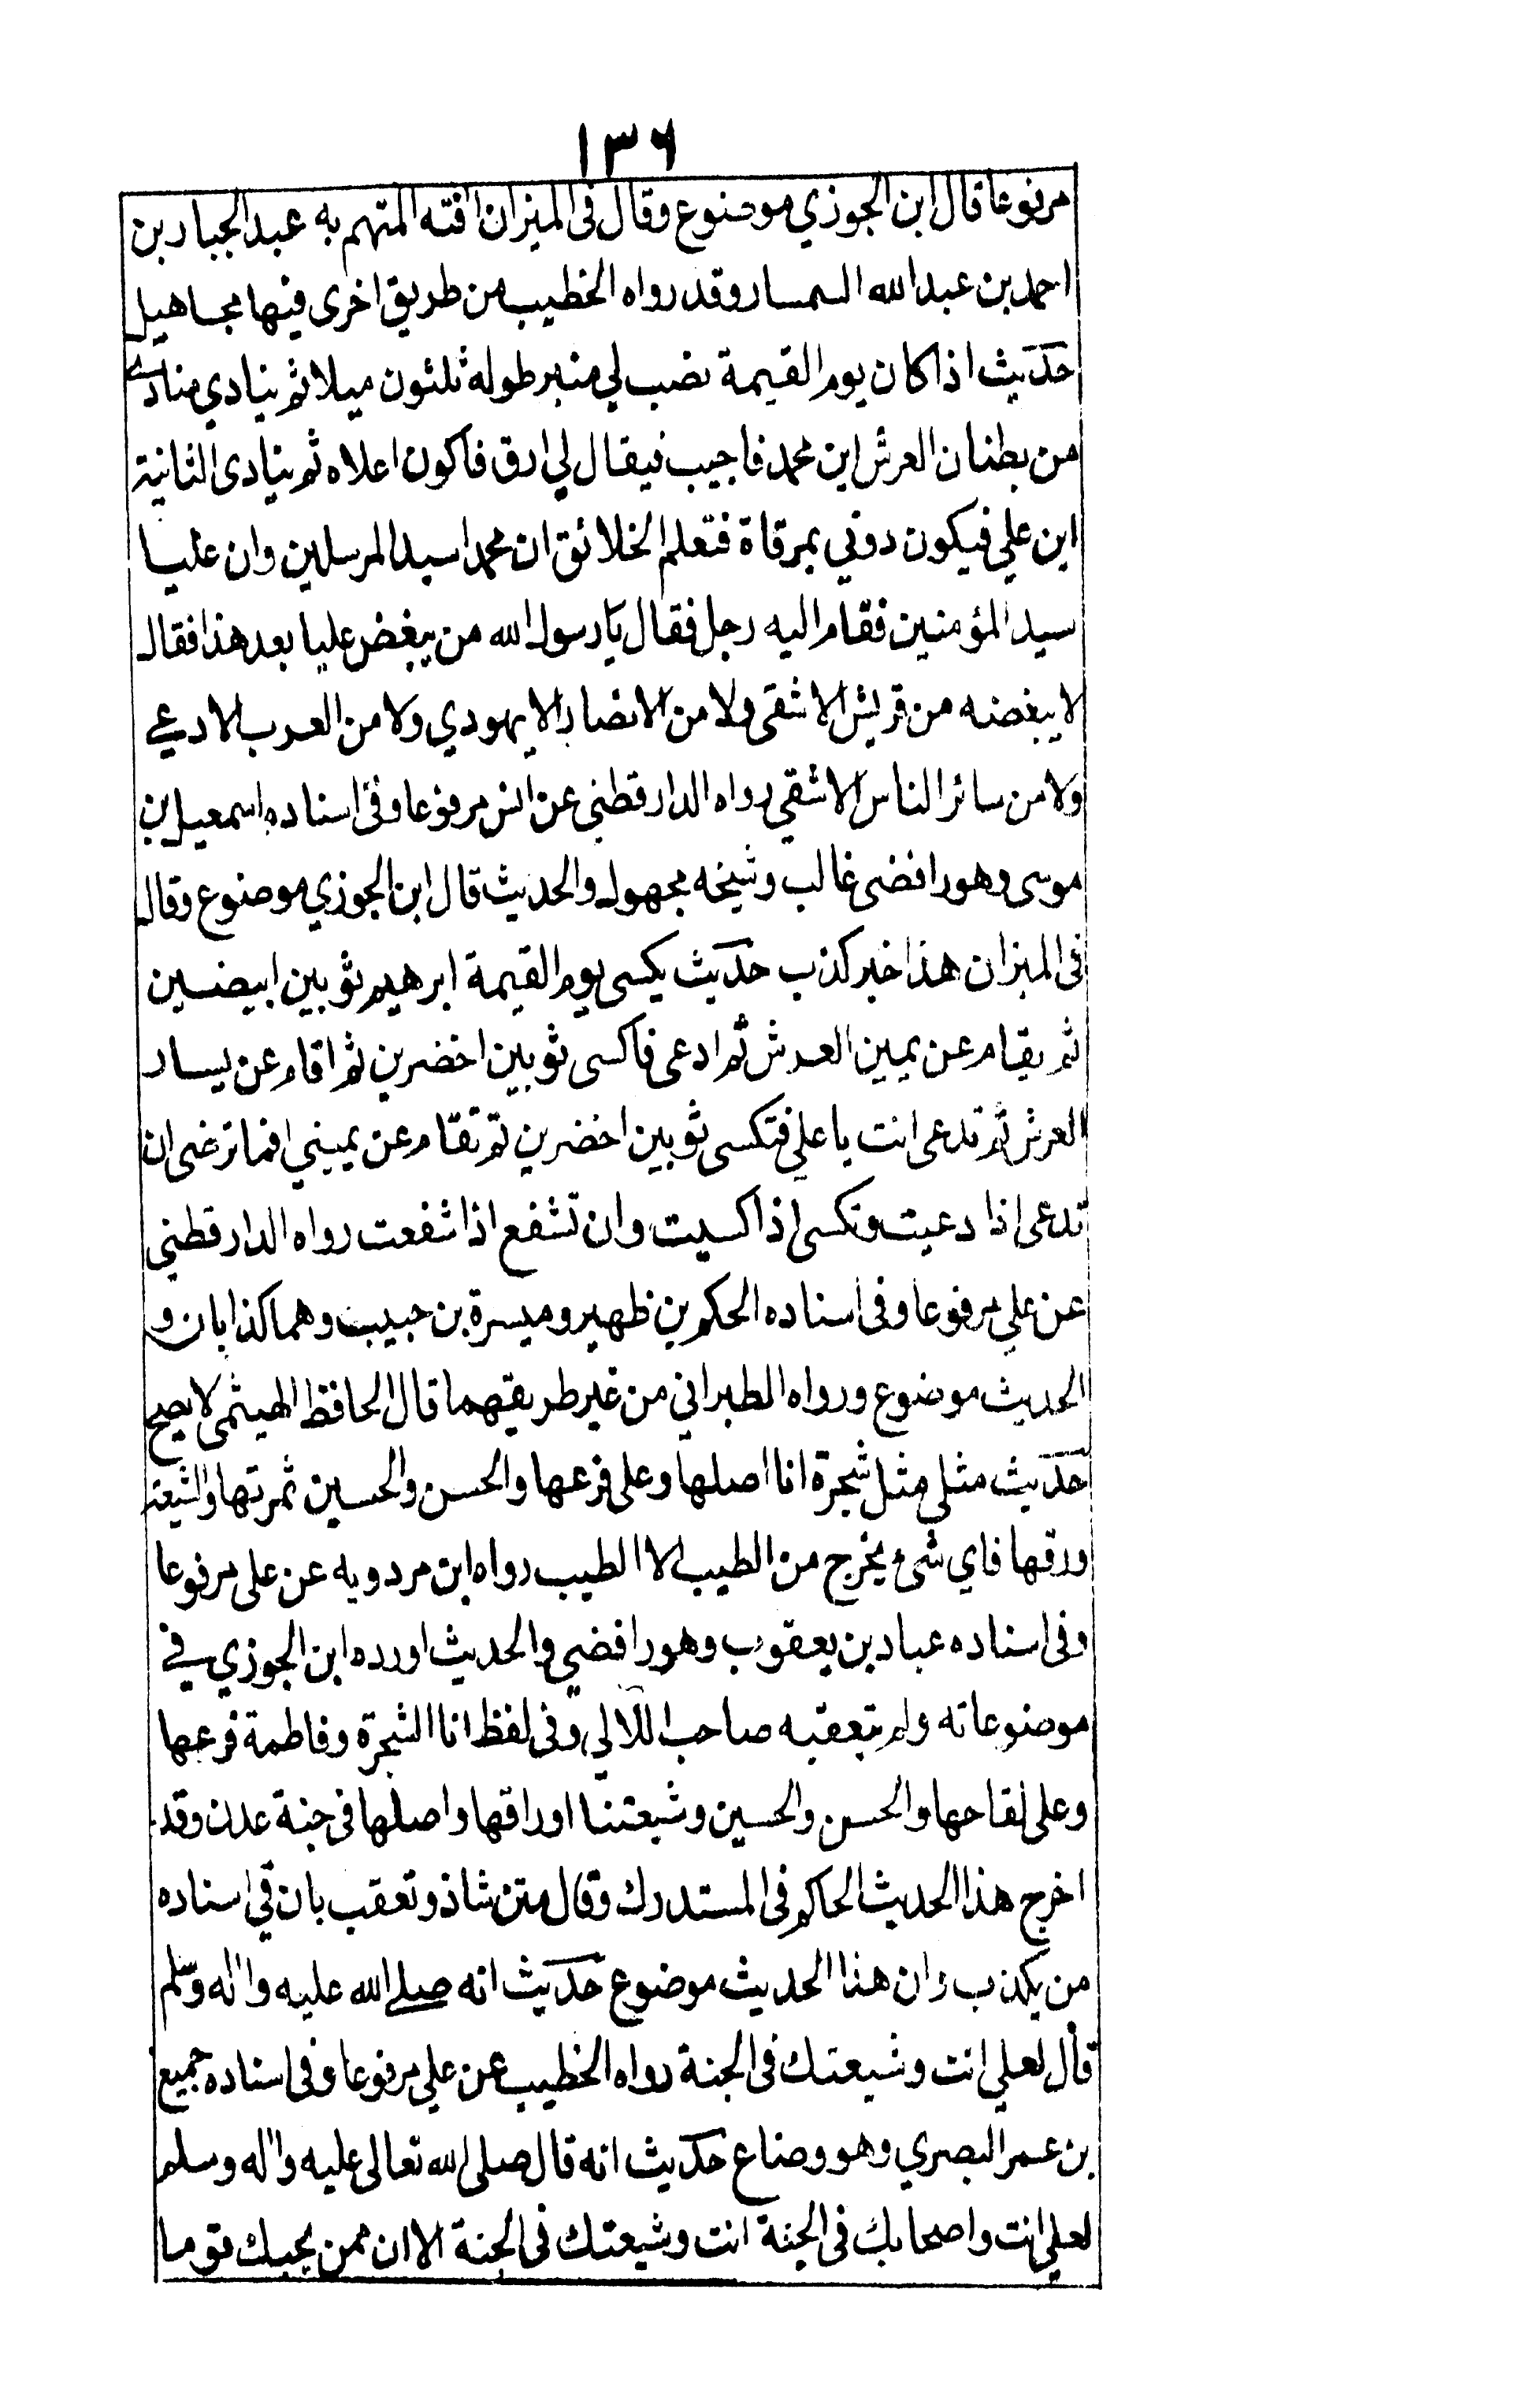 ١٣٦
مرفوعا قال ابن الجوزي موضوع وقال فى الميزان افته المتهم به عبد الجبار بن
احمد بن عبد الله السمسار وقد رواه الخطيب من طريق اخرى فيها مجاهيل
حديث اذا كان يوم القيمة نصب لي منبر طوله ثلثون ميلا ثم ينادي مناد
من بطنان العرش اين محمد فاجيب فيقال لي ارق فاكون اعلاه ثم ينادى الثانية
اين علي فيكون دوني بمرقاة فتعلم الخلائق ان محمدا سيد المرسلين وان عليا
سيد المؤمنين فقام اليه رجل فقال يا رسول الله من يبغض عليا بعد هذا فقال
لا يبغضه من قريش الا شقى ولا من الانصار الا يهودي ولا من العرب الا دعي
ولا من سائر الناس الا شقي رواه الدارقطني عن انس مرفوعا وفى اسناده اسمعيل بن
موسى وهو رافضى غالب وشيخه مجهول والحديث قال ابن الجوزي موضوع وقال
فى الميزان هذا خبر كذب حديث يكسى يوم القيمة ابرهيم ثوبين ابيضين
ثم يقام عن يمين العرش ثم ادعى فاكسى ثوبين اخضرين ثم اقام عن يسار
العرش ثم تدعى انت يا علي فتكسى ثوبين اخضرين ثم تقام عن يميني افما ترضى ان
تدعى اذا دعيت وتكسى اذا كسيت وان تشفع اذا شفعت رواه الدارقطني
عن علي مرفوعا وفى اسناده الحكم بن ظهير وميسرة بن حبيب وهما كذابان و
الحديث موضوع ورواه الطبراني من غير طريقهما قال الحافظ الهيثمى لا يصح
حديث مثلي مثل شجرة انا اصلها وعلى فرعها والحسن والحسين ثمرتها والشيعة
ورقها فاي شئ يخرج من الطيب الا الطيب رواه ابن مردويه عن على مرفوعا
وفى اسناده عباد بن يعقوب وهو رافضي والحديث اورده ابن الجوزي في
موضوعاته ولم يتعقبه صاحب اللالي وفى لفظ انا الشجرة وفاطمة فرعها
وعلى لقاحها والحسن والحسين وشيعتنا اوراقها واصلها فى جنة عدن وقد
اخرج هذا الحديث الحاكم فى المستدرك وقال متن شاذ وتعقب بان في اسناده
من يكذب وان هذا الحديث موضوع حديث انه صلى الله عليه واله وسلم
قال لعلي انت وشيعتك فى الجنة رواه الخطيب عن علي مرفوعا وفى اسناده جميع
بن عمر البصري وهو وضاع حديث انه قال صلى الله تعالى عليه واله وسلم
لعلي انت واصحابك فى الجنة انت وشيعتك فى الجنة الا ان ممن يحبك قوما